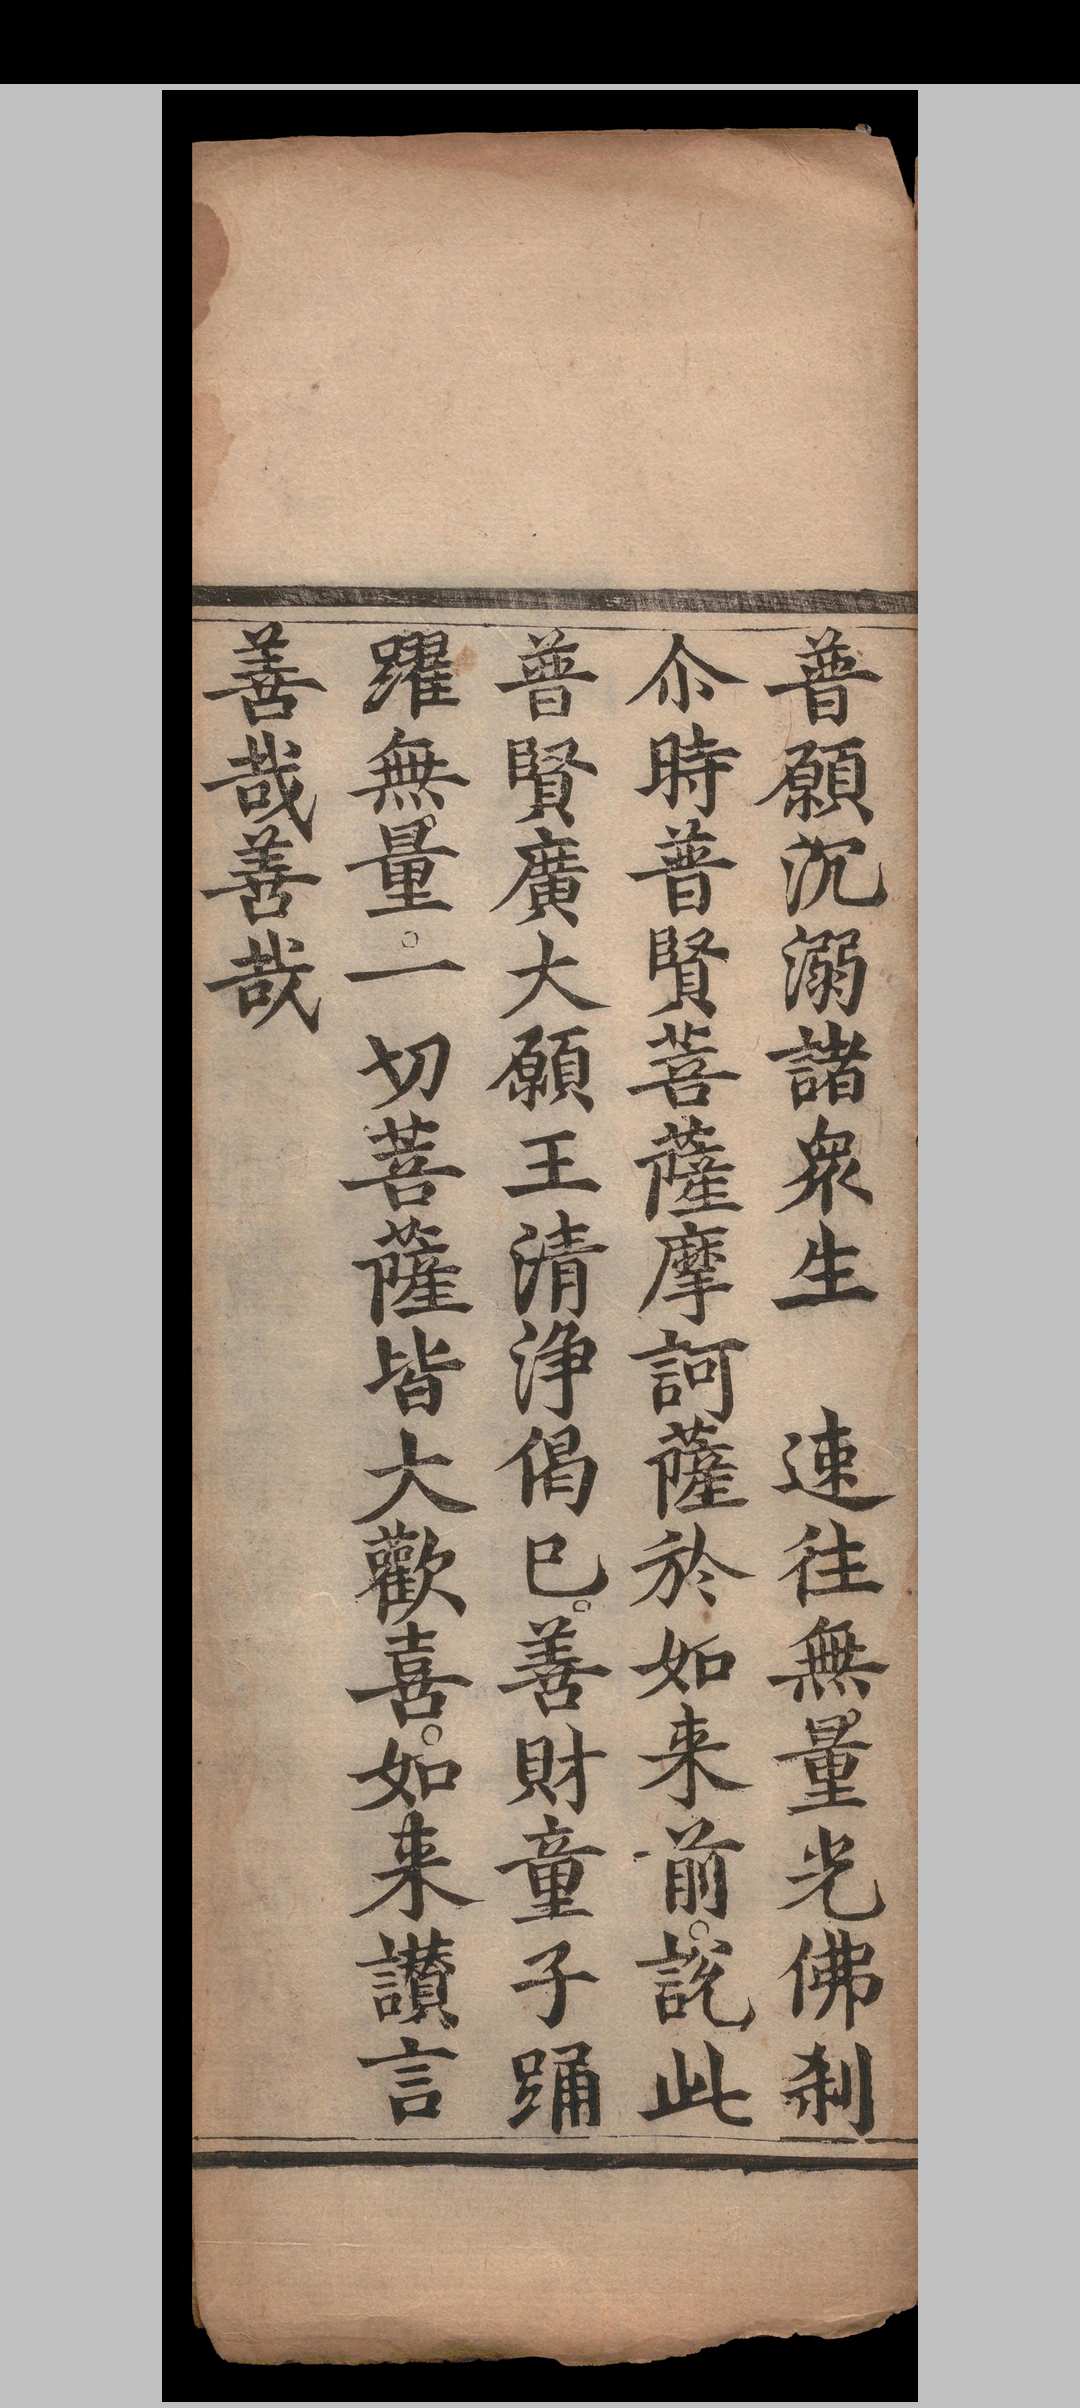 普願沉溺諸衆生　速往無量光佛刹
尒時普賢菩薩摩訶薩於如来前。說此
普賢廣大願王清淨偈巳。善財童子踊
躍無量。一切菩薩皆大歡喜。如来讃言
善哉善哉